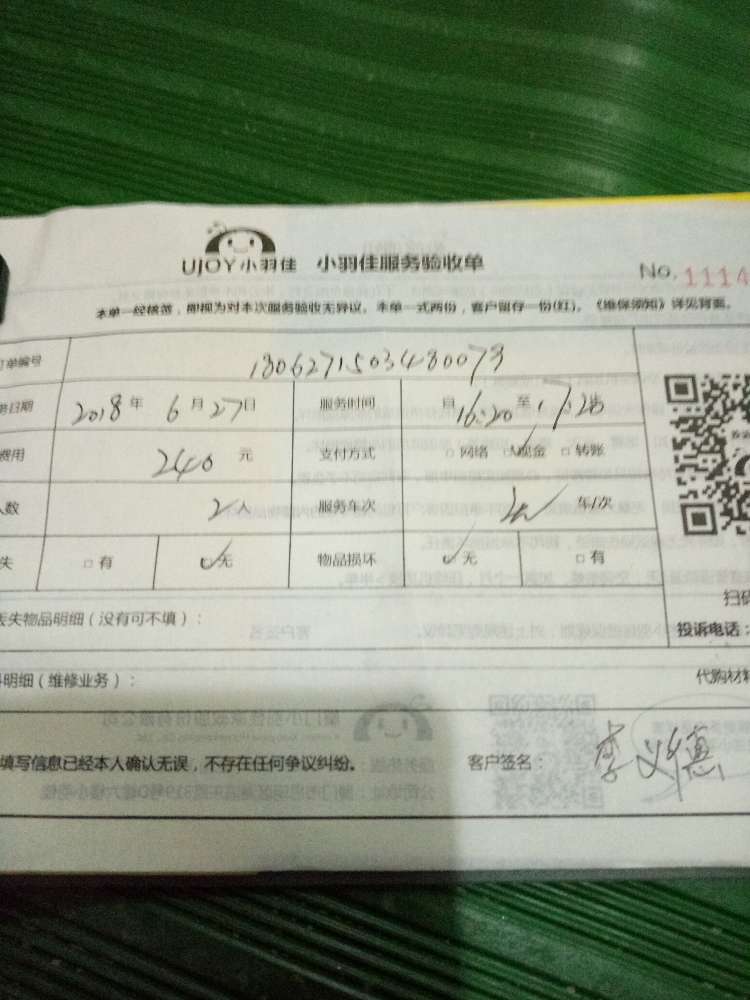 UJOY小羽佳 小羽佳服务验收单
No. 1114
本单一经核签，即视为对本次服务验收无异议。本单一式两份，客户留存一份(红)。《维保须知》详见背面。
订单编号 1806271503480073
务日期 2018年6月27日 服务时间 自16:20至17:28
费用 240元 支付方式 □网络 ☑现金 □转账
人数 2人 服务车次 车/次
失 □有 ☑无 物品损坏 ☑无 □有
丢失物品明细（没有可不填）：
扫码
投诉电话：
料明细（维修业务）： 代购材料
填写信息已经本人确认无误，不存在任何争议纠纷。 客户签名： 李义德